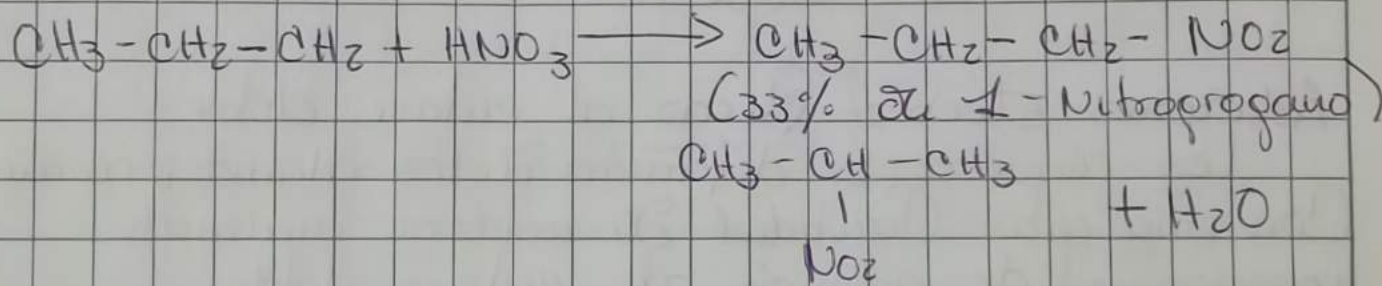 CH3-CH2-CH2 + HNO3 → CH3-CH2-CH2-NO2
(33% di 1-Nitropropano)
CH3-CH-CH3
|
+ H2O
NO2